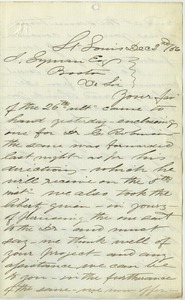 St Louis Dec 3rd / 56
S. Lyman Esq
Boston
Dr Sir
Your fav
of the 26th ult came to
hand yesterday enclosing
one for Dr C. Robinson
the same was forwarded
last night as per his
direction which he
will receive on the
we also took the
liberty given in yours
of perusing the one sent
to the Dr and must
say, we think well of
your project and any
assistance we can
to you in the furtherance
of the same, we